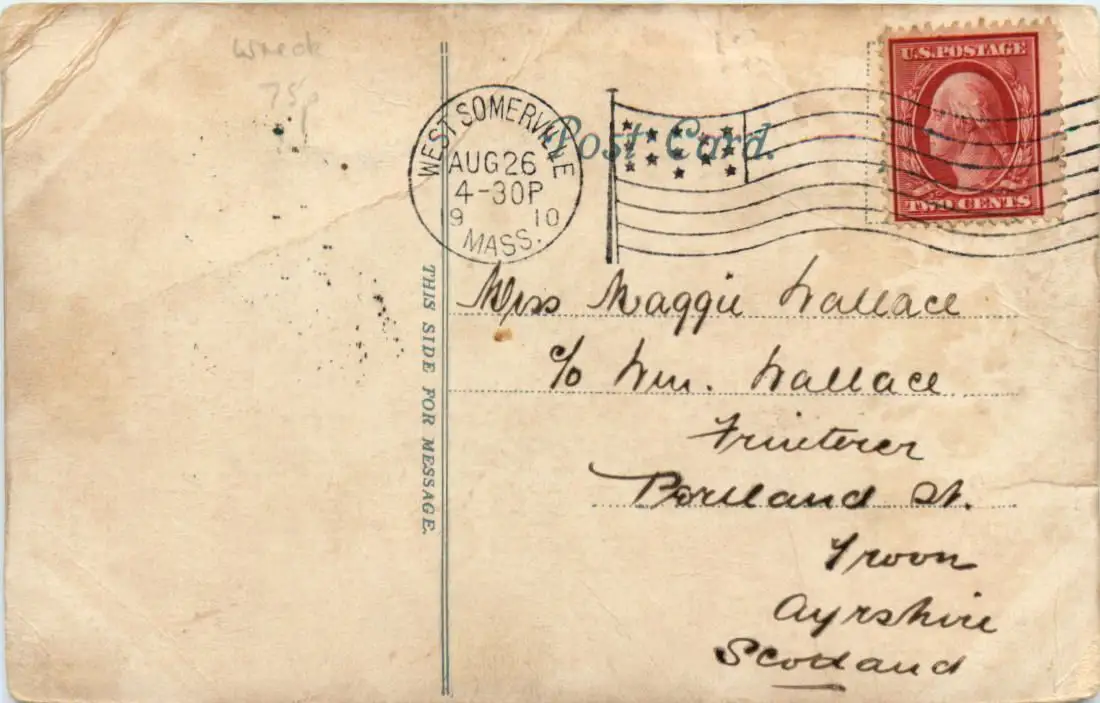 Wreck
75p
Post Card.
WEST SOMERVILLE
AUG 26
4-30P
19 10
MASS.
U.S. POSTAGE
TWO CENTS
THIS SIDE FOR MESSAGE.
Miss Maggie Wallace
c/o Wm. Wallace
Fruiterer
Portland St.
Troon
Ayrshire
Scotland